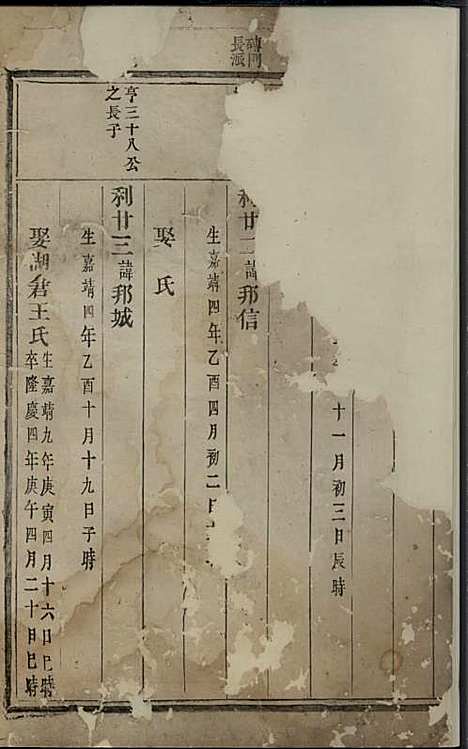 長派
十一月初三日辰時
利廿二諱邦信
生嘉靖四年乙酉四月初二日
娶 氏
亨三十八公
之長子
利廿三諱邦城
生嘉靖四年乙酉十月十九日子時
娶湖倉王氏
生嘉靖九年庚寅四月十六日巳時
卒隆慶四年庚午四月二十日巳時